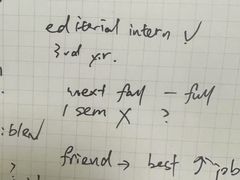 editerial intern ✓
3rd yr.
next fall - full
1 sem X ?
friend → best
?